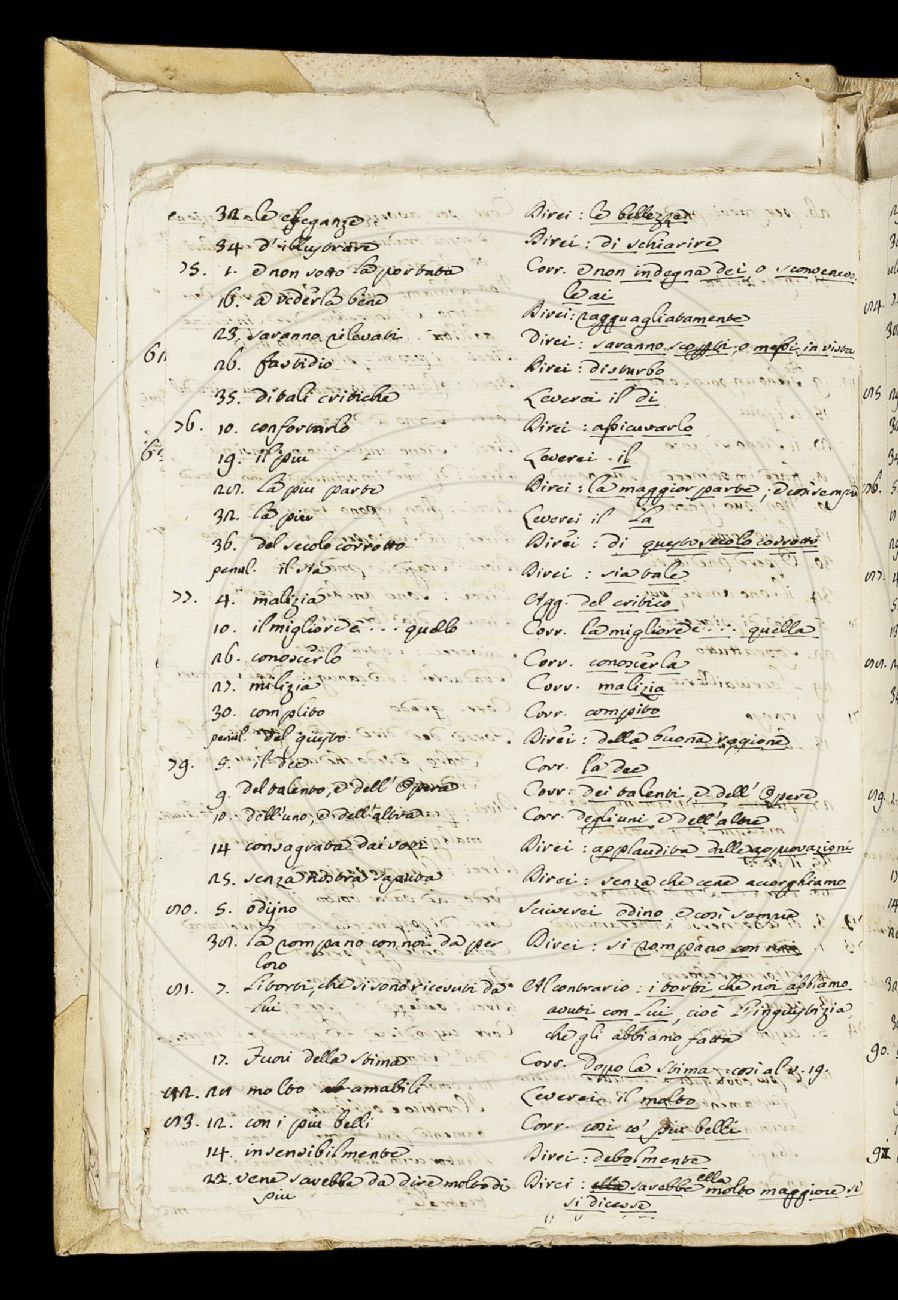 32. le eleganze Direi: le bellezze
34. d'illustrare Direi: di schiarire
75. 1. e non sotto la portata Corr. e non indegna dei, o sconvenevo-
le ai
16. a vederla bene Direi: ragguagliatamente
23. saranno rilevati Direi: saranno scoperti, o messi in vista
26. fastidio Direi: disturbo
35. di tali critiche Leverei il di
76. 10. confortarlo Direi: assicurarlo
19. il piu Leverei il
28. la piu parte Direi: la maggior parte; e così sempre
32. la piu Leverei il la
36. del secolo corrotto Direi: di questo secolo corrotto
penul. il sia Direi: sia tale
77. 4. malizia Agg. del critico
10. il migliore è ... quello Corr. la migliore è ... quella
26. conoscerlo Corr. conoscerla
27. milizia Corr. malizia
30. complito Corr. compito
penul. del gusto Direi: della buona ragione
79. 5. il dee Corr. la dee
9. del talento, e dell' Opera Corr. dei talenti, e dell' Opere
10. dell'uno, e dell'altra Corr. degli uni, e dell'altre
14 consagrata dai Direi: applaudita dalle approvazioni
25. senza nostra saputa Direi: senza che cene accorghiamo
80. 5. odijno Scriverei odino, e così sempre
38. la rompano con noi da per Direi: si rompano con noi
loro
81. 7. Li torti, che si sono ricevuti da Al contrario: i torti che noi abbiamo
lui avuti con Lui, cioè l'ingiustizia,
che gli abbiamo fatta
17. Fuori della stima Corr. dopo la stima così al v. 19.
82. 28 molto amabili Leverei il molto
83. 12. con i piu belli Corr. così co' piu belli
14. insensibilmente Direi: debolmente
22. vene sarebbe da dire molto di Direi: ella sarebbe molto maggiore se
piu si dicesse